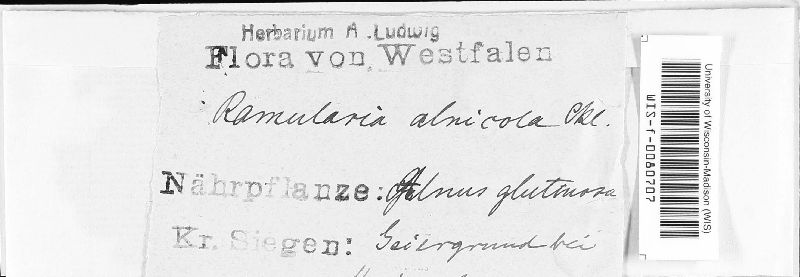 Herbarium A. Ludwig
Flora von Westfalen
Ramularia alnicola Cke.
Nährpflanze: Alnus glutinosa
Kr. Siegen: Geiergrund bei
University of Wisconsin-Madison (WIS)
WIS-f-0060707